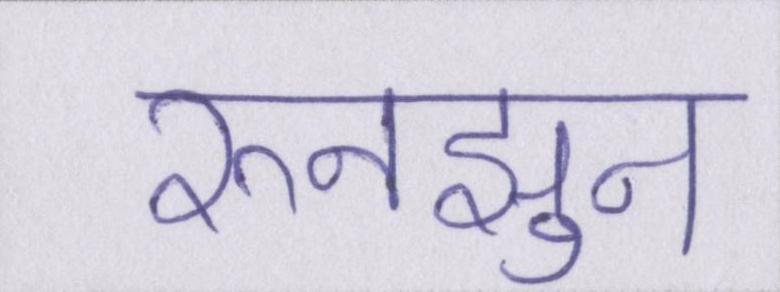 रुनझुन